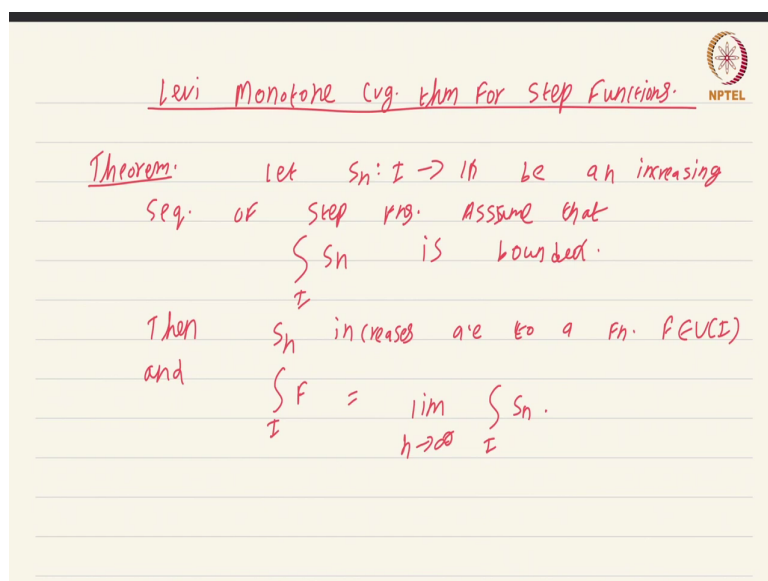 NPTEL
Levi Monotone Cvg. thm For Step Functions.
Theorem. Let Sn: I -> R be an increasing
Seq. of Step fns. Assume that
∫ Sn is bounded.
I
Then Sn increases a.e to a Fn. f ∈ U(I)
and
∫ F = lim ∫ Sn.
I n->∞ I